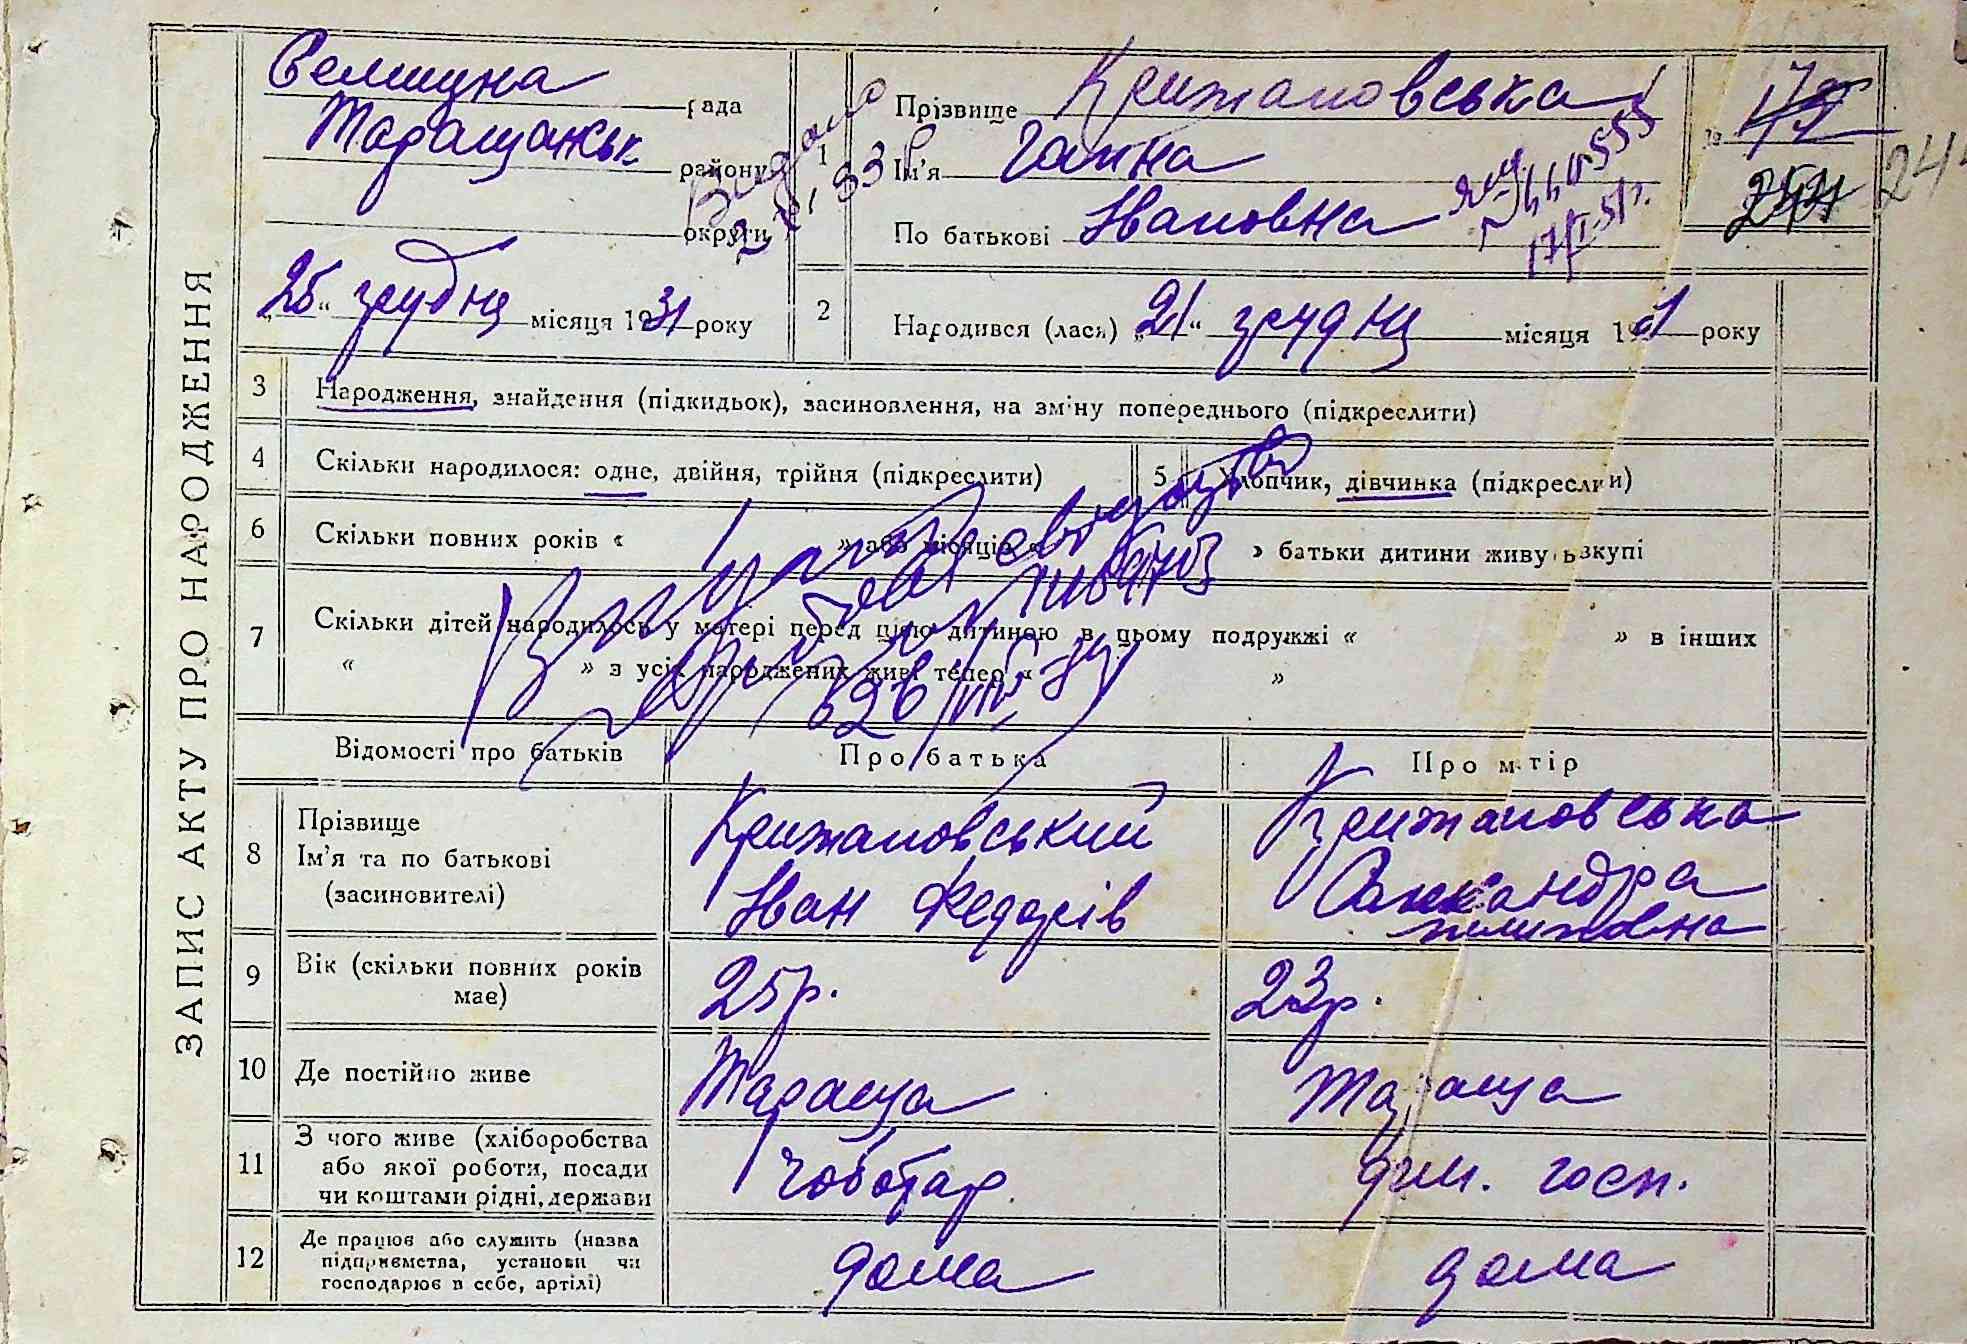 ЗАПИС АКТУ ПРО НАРОДЖЕННЯ
Селищна рада
Таращанськ району
округи
„25“ грудня місяця 1931 року
1
Прізвище Крижановська
Ім'я Ганна
По батькові Івановна
№
244
244
2
Народився (лась) „21“ грудня місяця 1931 року
3 Народження, знайдення (підкидьок), засиновлення, на зміну попереднього (підкреслити)
4 Скільки народилося: одне, двійня, трійня (підкреслити)
5 Хлопчик, дівчинка (підкреслити)
6 Скільки повних років « » або місяців « » батьки дитини живуть вкупі
7 Скільки дітей народилось у матері перед цією дитиною в цьому подружжі « » в інших
« » з усіх народжених живі тепер « »
Відомості про батьків
Про батька
Про матір
8 Прізвище
Ім'я та по батькові
(засиновителі)
Крижановський
Іван Федорів
Крижановська
Олександра
Пилиповна
9 Вік (скільки повних років
має)
25 р.
23 р.
10 Де постійно живе
Тараща
Тараща
11 З чого живе (хліборобства
або якої роботи, посади
чи коштами рідні, держави
Чоботар
дом. госп.
12 Де працює або служить (назва
підприємства, установи чи
господарює в себе, артілі)
дома
дома